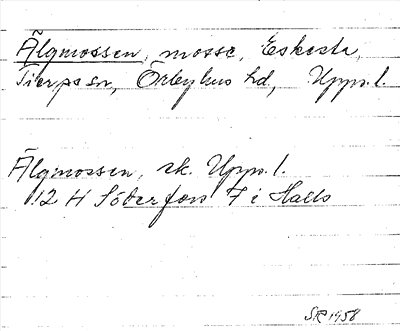 Älgmossen, mosse, Eskesta,
Tierps sn, Örbyhus hd, Upps. l.
Älgmossen, sk. Upps. l.
12 H Söderfors 7 i Halls
SR 1958